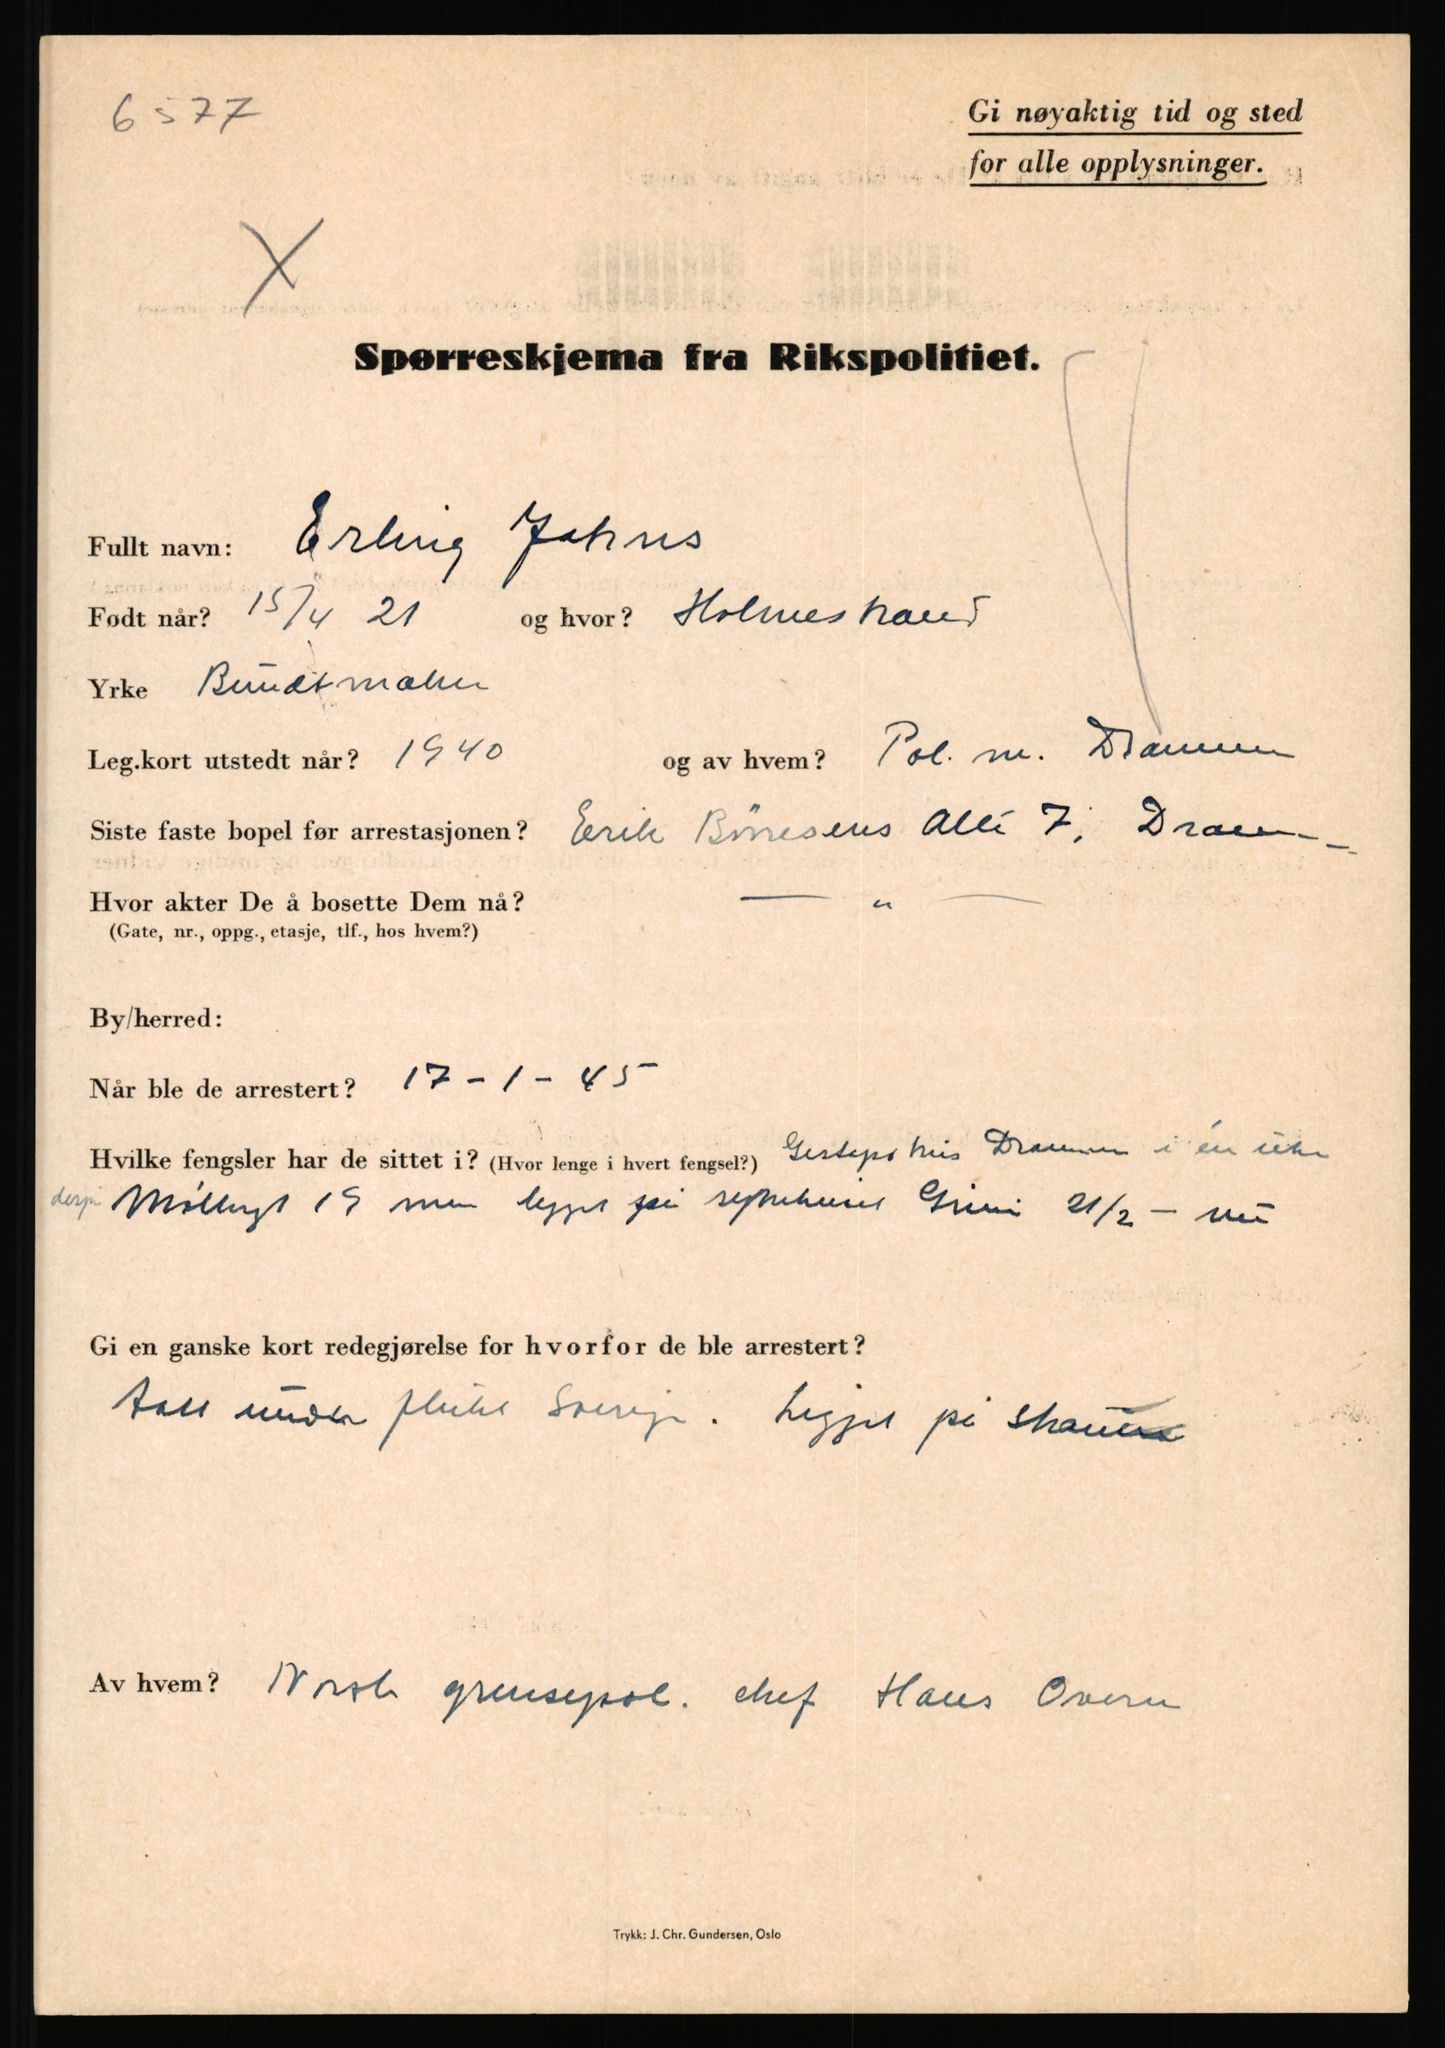 6577
Gi nøyaktig tid og sted
for alle opplysninger.
Spørreskjema fra Rikspolitiet.
Fullt navn: Erling Johns
Født når? 15/4 21 og hvor? Holmestrand
Yrke Bundtmaker
Leg.kort utstedt når? 1940 og av hvem? Pol. m. Drammen
Siste faste bopel før arrestasjonen? Erik Börresens Allé 7, Dramm
Hvor akter De å bosette Dem nå? — " —
(Gate, nr., oppg., etasje, tlf., hos hvem?)
By/herred:
Når ble de arrestert? 17-1-45
Hvilke fengsler har de sittet i? (Hvor lenge i hvert fengsel?) Gestapohus Drammen i én uke
Møllergt 19 men ligget på sykehuset Grini 21/2 – nu
Gi en ganske kort redegjørelse for hvorfor de ble arrestert?
tatt under flukt Sverige. Ligget på
Av hvem? Norsk grensepol. chef Hans Overn
Trykk: J. Chr. Gundersen, Oslo